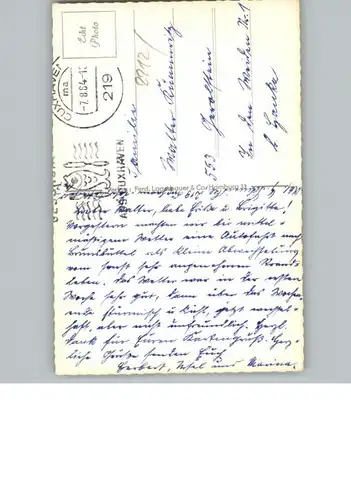 Echt Photo
CUXHAVEN
ma
-7.8.64-1
219
AUS CUXHAVEN
(22 12)
Familie
Walter Kümmritz
553 Gerolstein
In den Weiden Nr. 1
b. Ganke
Ferd. Lagerbauer & Co Hamburg 33
Lieber Walter, liebe Hilde u. Brigitte!
Vorgestern machten wir bei mittel-
mäßigem Wetter eine Autofahrt nach
Brunsbüttel als kleine Abwechslung
vom sonst sehr angenehmen Strand-
leben. Das Wetter war in der ersten
Woche sehr gut, dann über das Wochen-
ende stürmisch u. kühl, jetzt wechsel-
haft, aber nicht unfreundlich. Hrzl.
Dank für Euren Kartengruß. Herz-
liche Grüße senden Euch
Herbert, und Marina.